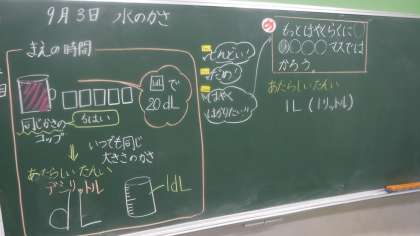 9月3日 水のかさ
まえの時間
1dLで
20dL
同じかさの
コップ
5はい
いつでも同じ
大きさのかさ
あたらしいたんい
デシリットル
dL
1dL
めんどい!
だめ!
はやく
はかりたい!!
め
もっとはやくらくに
○○○○マスでは
かろう。
あたらしいたんい
1L (1リットル)